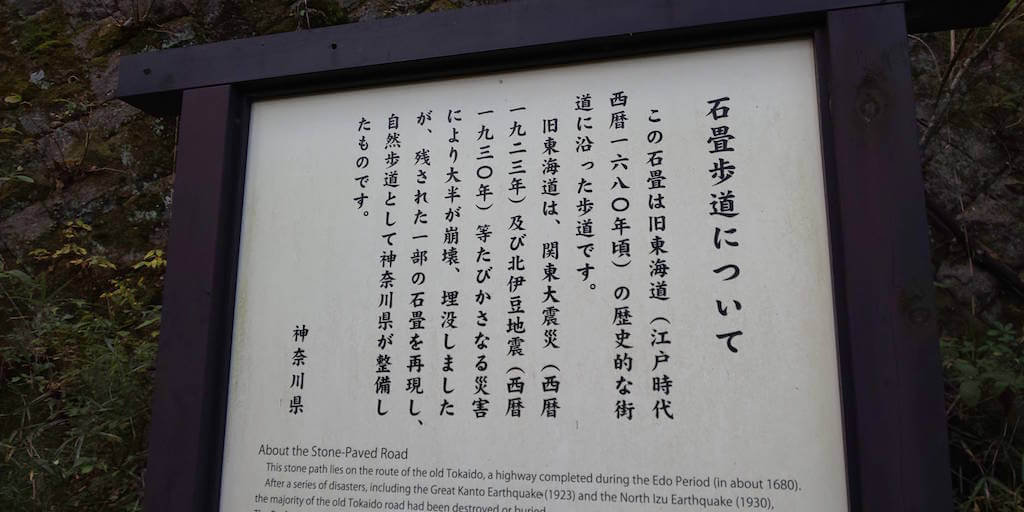 石畳歩道について
この石畳は旧東海道（江戸時代
西暦一六八〇年頃）の歴史的な街
道に沿った歩道です。
旧東海道は、関東大震災（西暦
一九二三年）及び北伊豆地震（西暦
一九三〇年）等たびかさなる災害
により大半が崩壊、埋没しました
が、残された一部の石畳を再現し、
自然歩道として神奈川県が整備し
たものです。
神奈川県
About the Stone-Paved Road
This stone path lies on the route of the old Tokaido, a highway completed during the Edo Period (in about 1680).
After a series of disasters, including the Great Kanto Earthquake (1923) and the North Izu Earthquake (1930),
the majority of the old Tokaido road had been destroyed or buried.